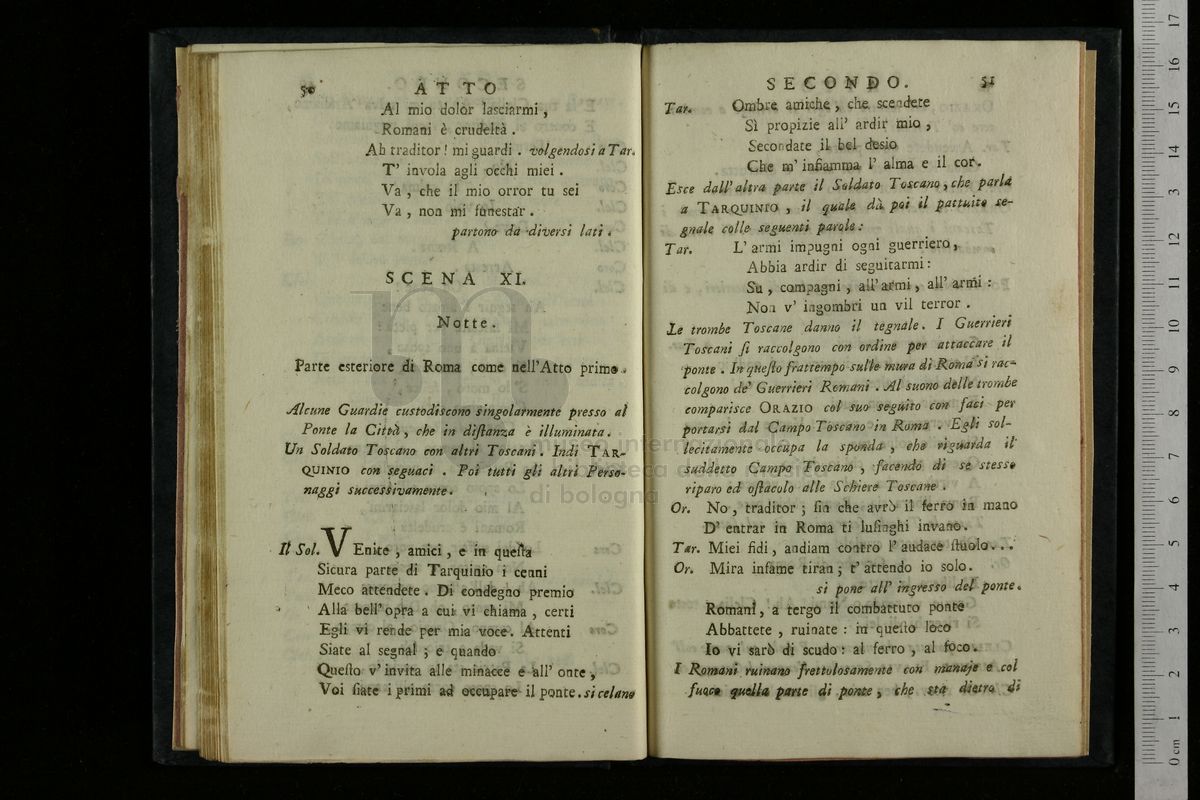 50 ATTO
Al mio dolor lasciarmi,
Romani è crudeltà.
Ah traditor! mi guardi. volgendosi a Tar.
T' invola agli occhi miei.
Va, che il mio orror tu sei
Va, non mi funestar.
partono da diversi lati.
SCENA XI.
Notte.
Parte esteriore di Roma come nell'Atto primo.
Alcune Guardie custodiscono singolarmente presso al
Ponte la Città, che in diſtanza è illuminata.
Un Soldato Toscano con altri Toscani. Indi TAR-
QUINIO con seguaci. Poi tutti gli altri Perso-
naggi successivamente.
Il Sol. VEnite, amici, e in queſta
Sicura parte di Tarquinio i cenni
Meco attendete. Di condegno premio
Alla bell' opra a cui vi chiama, certi
Egli vi rende per mia voce. Attenti
Siate al segnal; e quando
Queſto v' invita alle minacce e all' onte,
Voi ſiate i primi ad occupare il ponte. si celano
SECONDO. 51
Tar. Ombre amiche, che scendete
Sì propizie all' ardir mio,
Secondate il bel desio
Che m' infiamma l' alma e il cor.
Esce dall' altra parte il Soldato Toscano, che parla
a TARQUINIO, il quale dà poi il pattuito se-
gnale colle seguenti parole:
Tar. L' armi impugni ogni guerriero,
Abbia ardir di seguitarmi:
Su, compagni, all' armi, all' armi:
Non v' ingombri un vil terror.
Le trombe Toscane danno il tegnale. I Guerrieri
Toscani ſi raccolgono con ordine per attaccare il
ponte. In queſto frattempo sulle mura di Roma si rac-
colgono de' Guerrieri Romani. Al suono delle trombe
comparisce ORAZIO col suo seguito con faci per
portarsi dal Campo Toscano in Roma. Egli sol-
lecitamente occupa la sponda, che riguarda il
suddetto Campo Toscano, facendo di se stesso
riparo ed oſtacolo alle Schiere Toscane.
Or. No, traditor; ſin che avrò il ferro in mano
D' entrar in Roma ti luſinghi invano.
Tar. Miei fidi, andiam contro l' audace ſtuolo...
Or. Mira infame tiran; t' attendo io solo.
si pone all' ingresso del ponte.
Romani, a tergo il combattuto ponte
Abbattete, ruinate: in queſto loco
Io vi sarò di scudo: al ferro, al foco.
I Romani ruinano frettolosamente con manaje e col
fuoco quella parte di ponte, che sta dietro di
museo internazionale
e biblioteca della musica
di bologna
17
16
15
14
13
12
11
10
9
8
7
6
5
4
3
2
1
0 cm